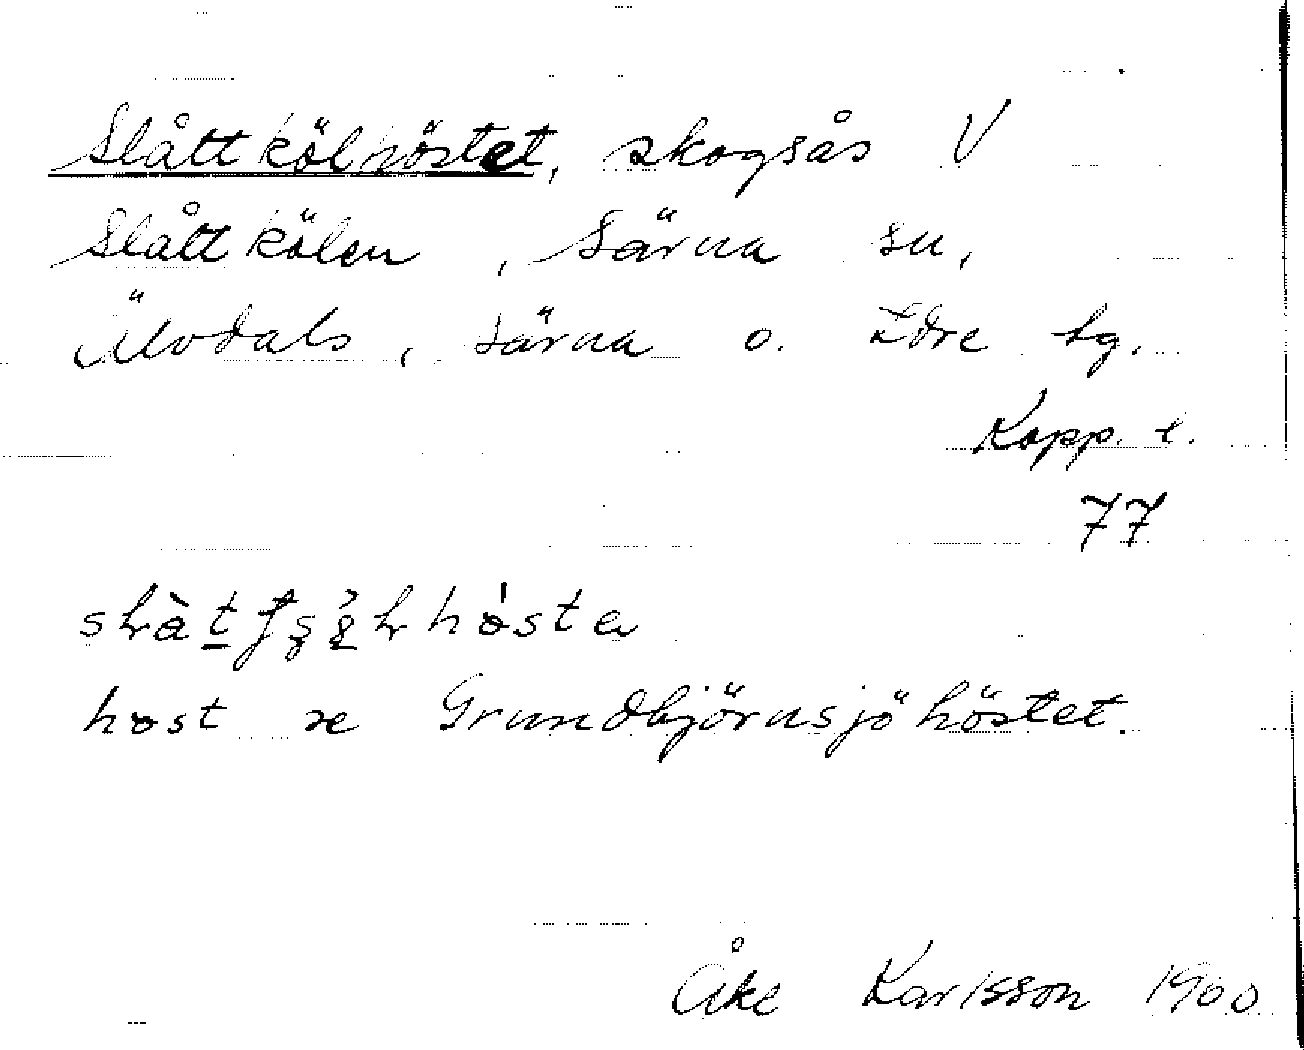 Slåttkölhöstet, skogsås V
Slåttkölen, Särna sn,
Älvdals, Särna o. Idre tg.
Kopp. l.
77
host se Grundbjörnsjöhöstet.
Åke Karlsson 1960